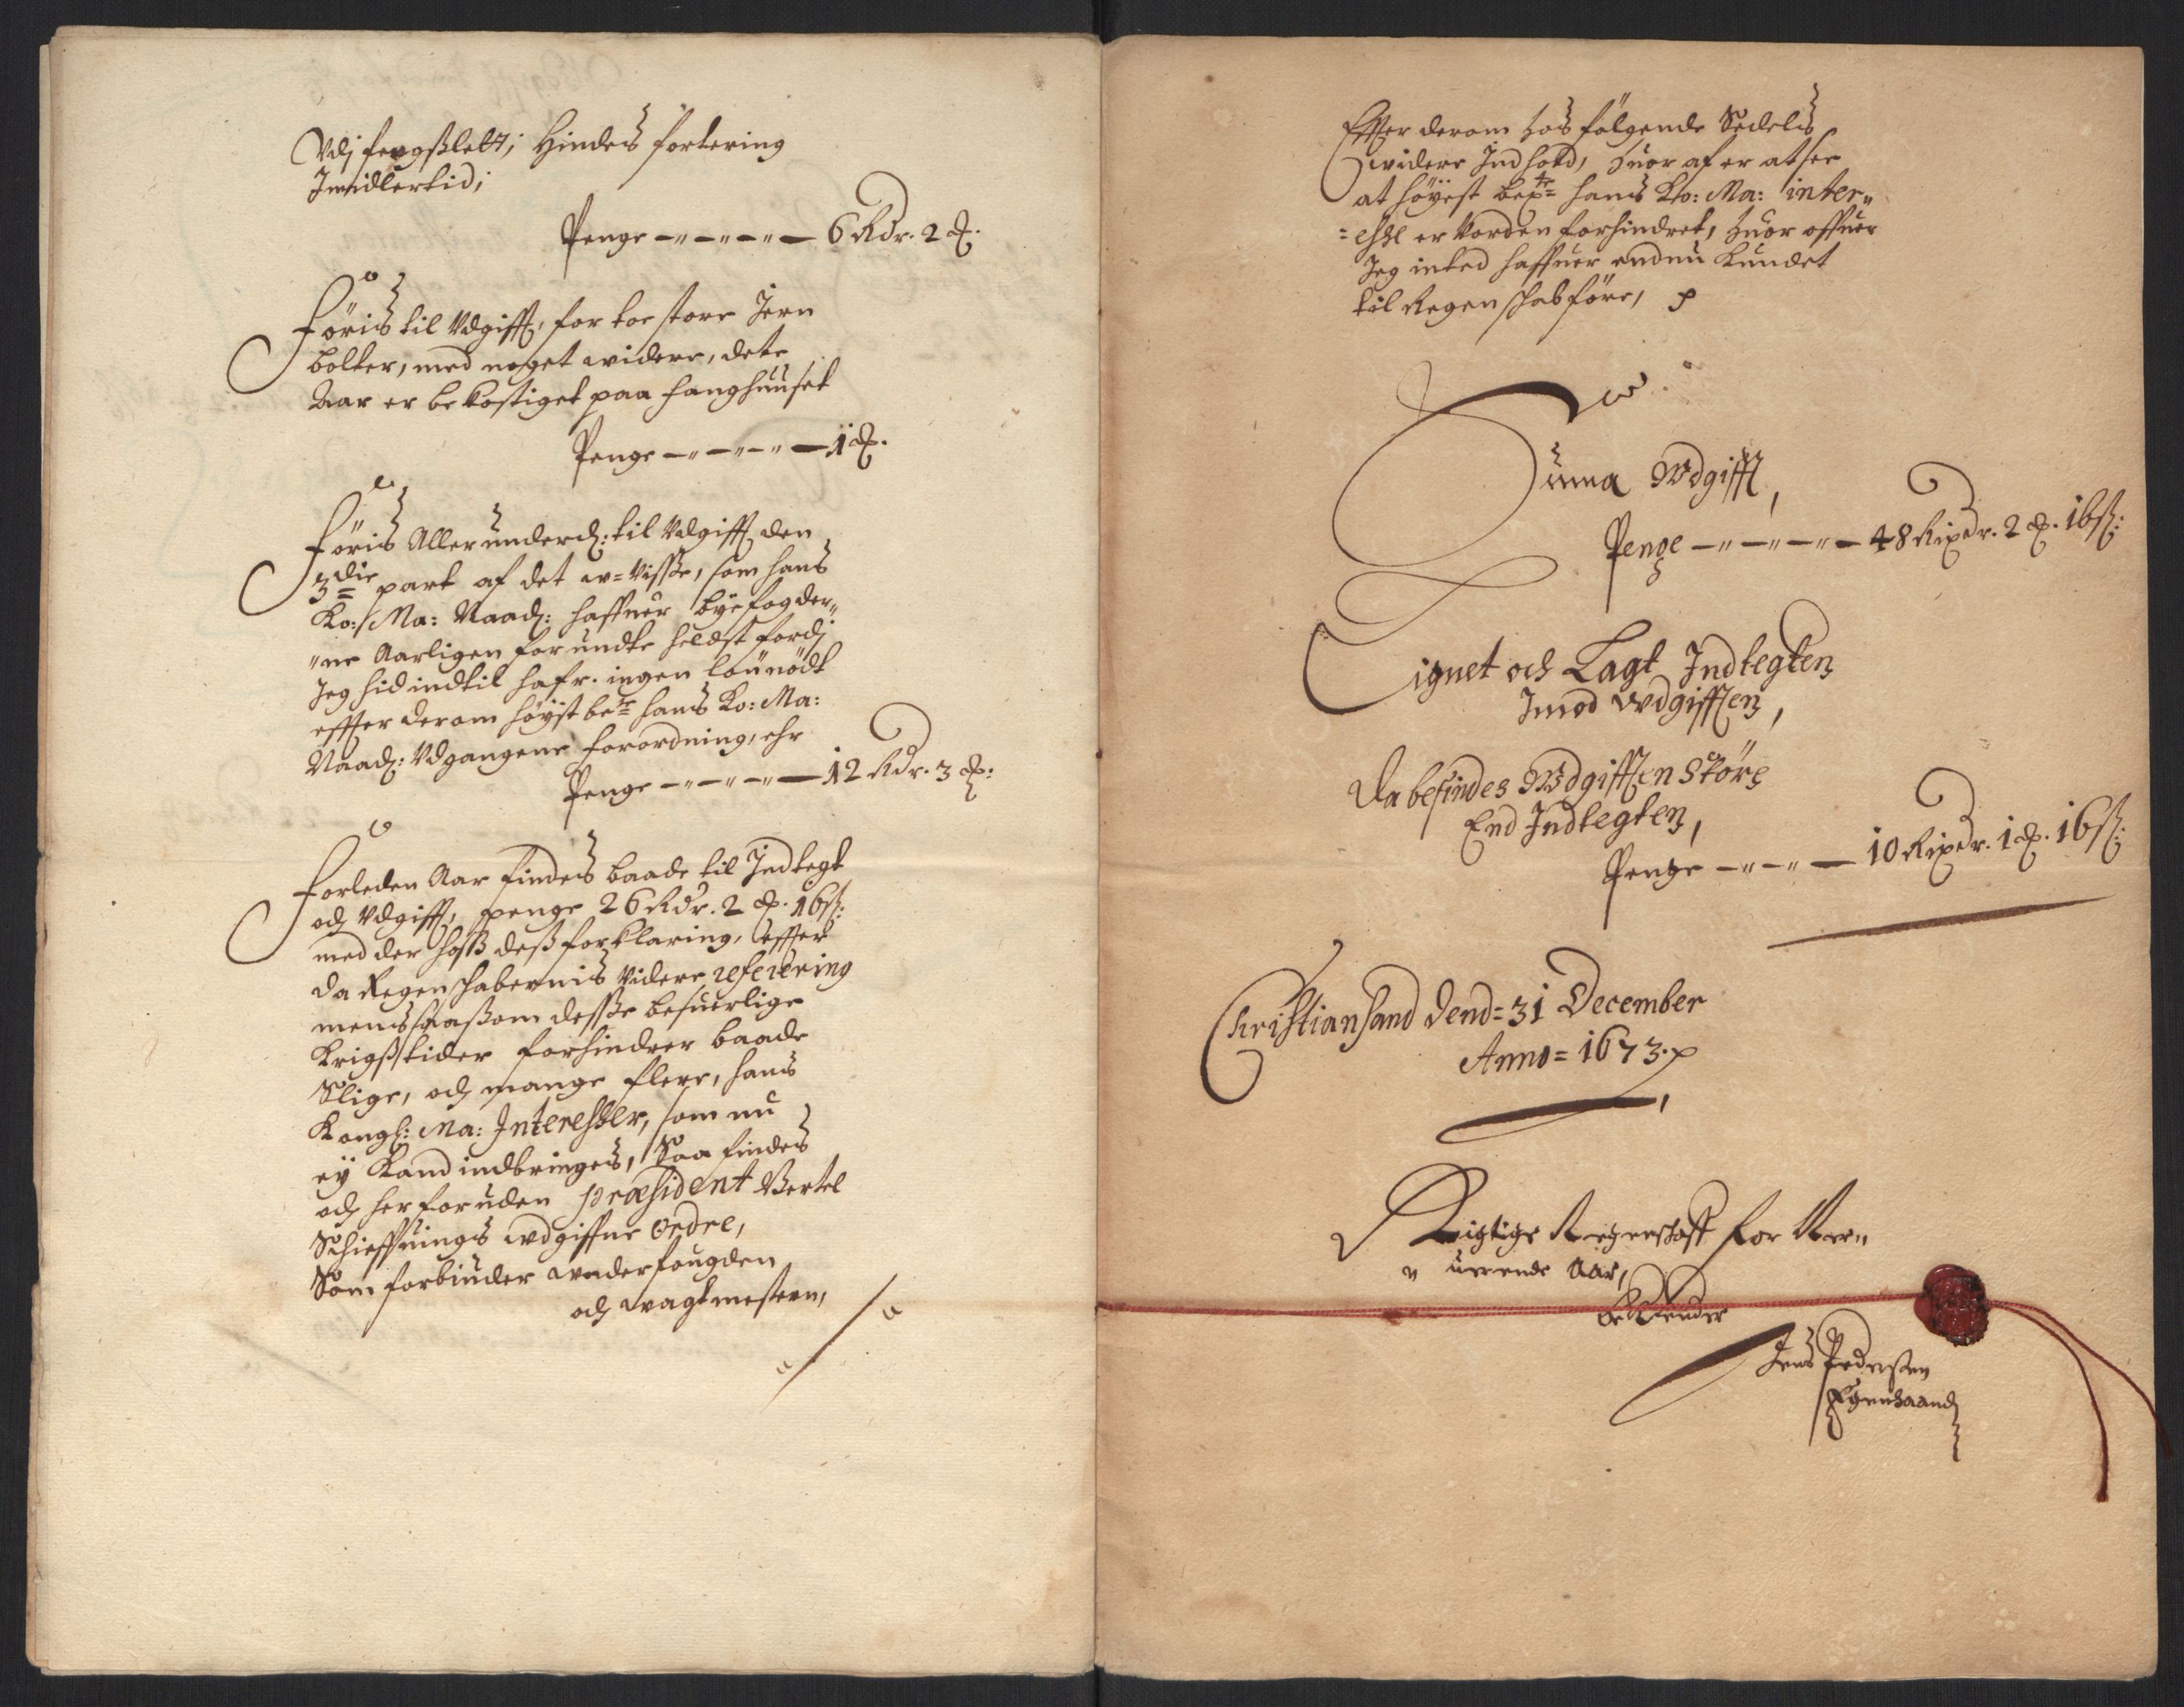 Vdj fengßlett; Hindes fortering
Imidlertid;
Penge — 6 Rdr. 2 ꝶ.
Föris til Vdgifft, for toe store Jern
bolter, med noget widere, dete
Aar er bekostiget paa fanghuuset
Penge — 1 ꝶ.
Föris Allerunderd: til Vdgifft den
3die part af det w=Visße, som hans
Ko: Ma: Naad: haffuer byefogder„
„ne Aarligen forundte heldst fordj
Jeg hid indtil hafr. ingen lön nödt
effter derom höyst bete hans Ko: Ma:
Naad: Vdgangene forordning, ehr
Penge — 12 Rdr. 3 ꝶ:
Forleden Aar findes baade til Indtegt
och Vdgifft, penge 26 Rdr. 2 ꝶ. 16 ß:
med der hoß deß forklaring, effter
da Regenschabernis Videre referering
mens saasom desße besuerlige
Krigßtider forhindrer baade
Slige, och mange flere, hans
Kongl: Ma: Interesßer, som nu
ey kand indbringes, Saa findes
och her foruden præsident Bertel
Schieffuings wdgiffne Ordre,
Som forbiuder underfougden
och wagtmestern,
Effter derom hos fölgende Sedels
widere Indhold, huor af er at see
at höyest bete hans Ko: Ma: inter„
=esße er Vorden forhindret, huor offuer
Jeg inted haffuer endnu kundet
til Regenschab före,
Suma Wdgifft,
Penge — 48 Rixdr. 2 ꝶ. 16 ß:
Lignet och Lagt Indtegten
Imod Wdgifften,
Da befindes Wdgifften Störe
End Indtegten,
Penge — 10 Rixdr. 1 ꝶ. 16 ß:
Christiansand Dend= 31 December
Anno= 1673.
Rigtige Regenschaff for Ner„
„uerende Aar,
Bekiender
Jens Pedersen
Egenhaand